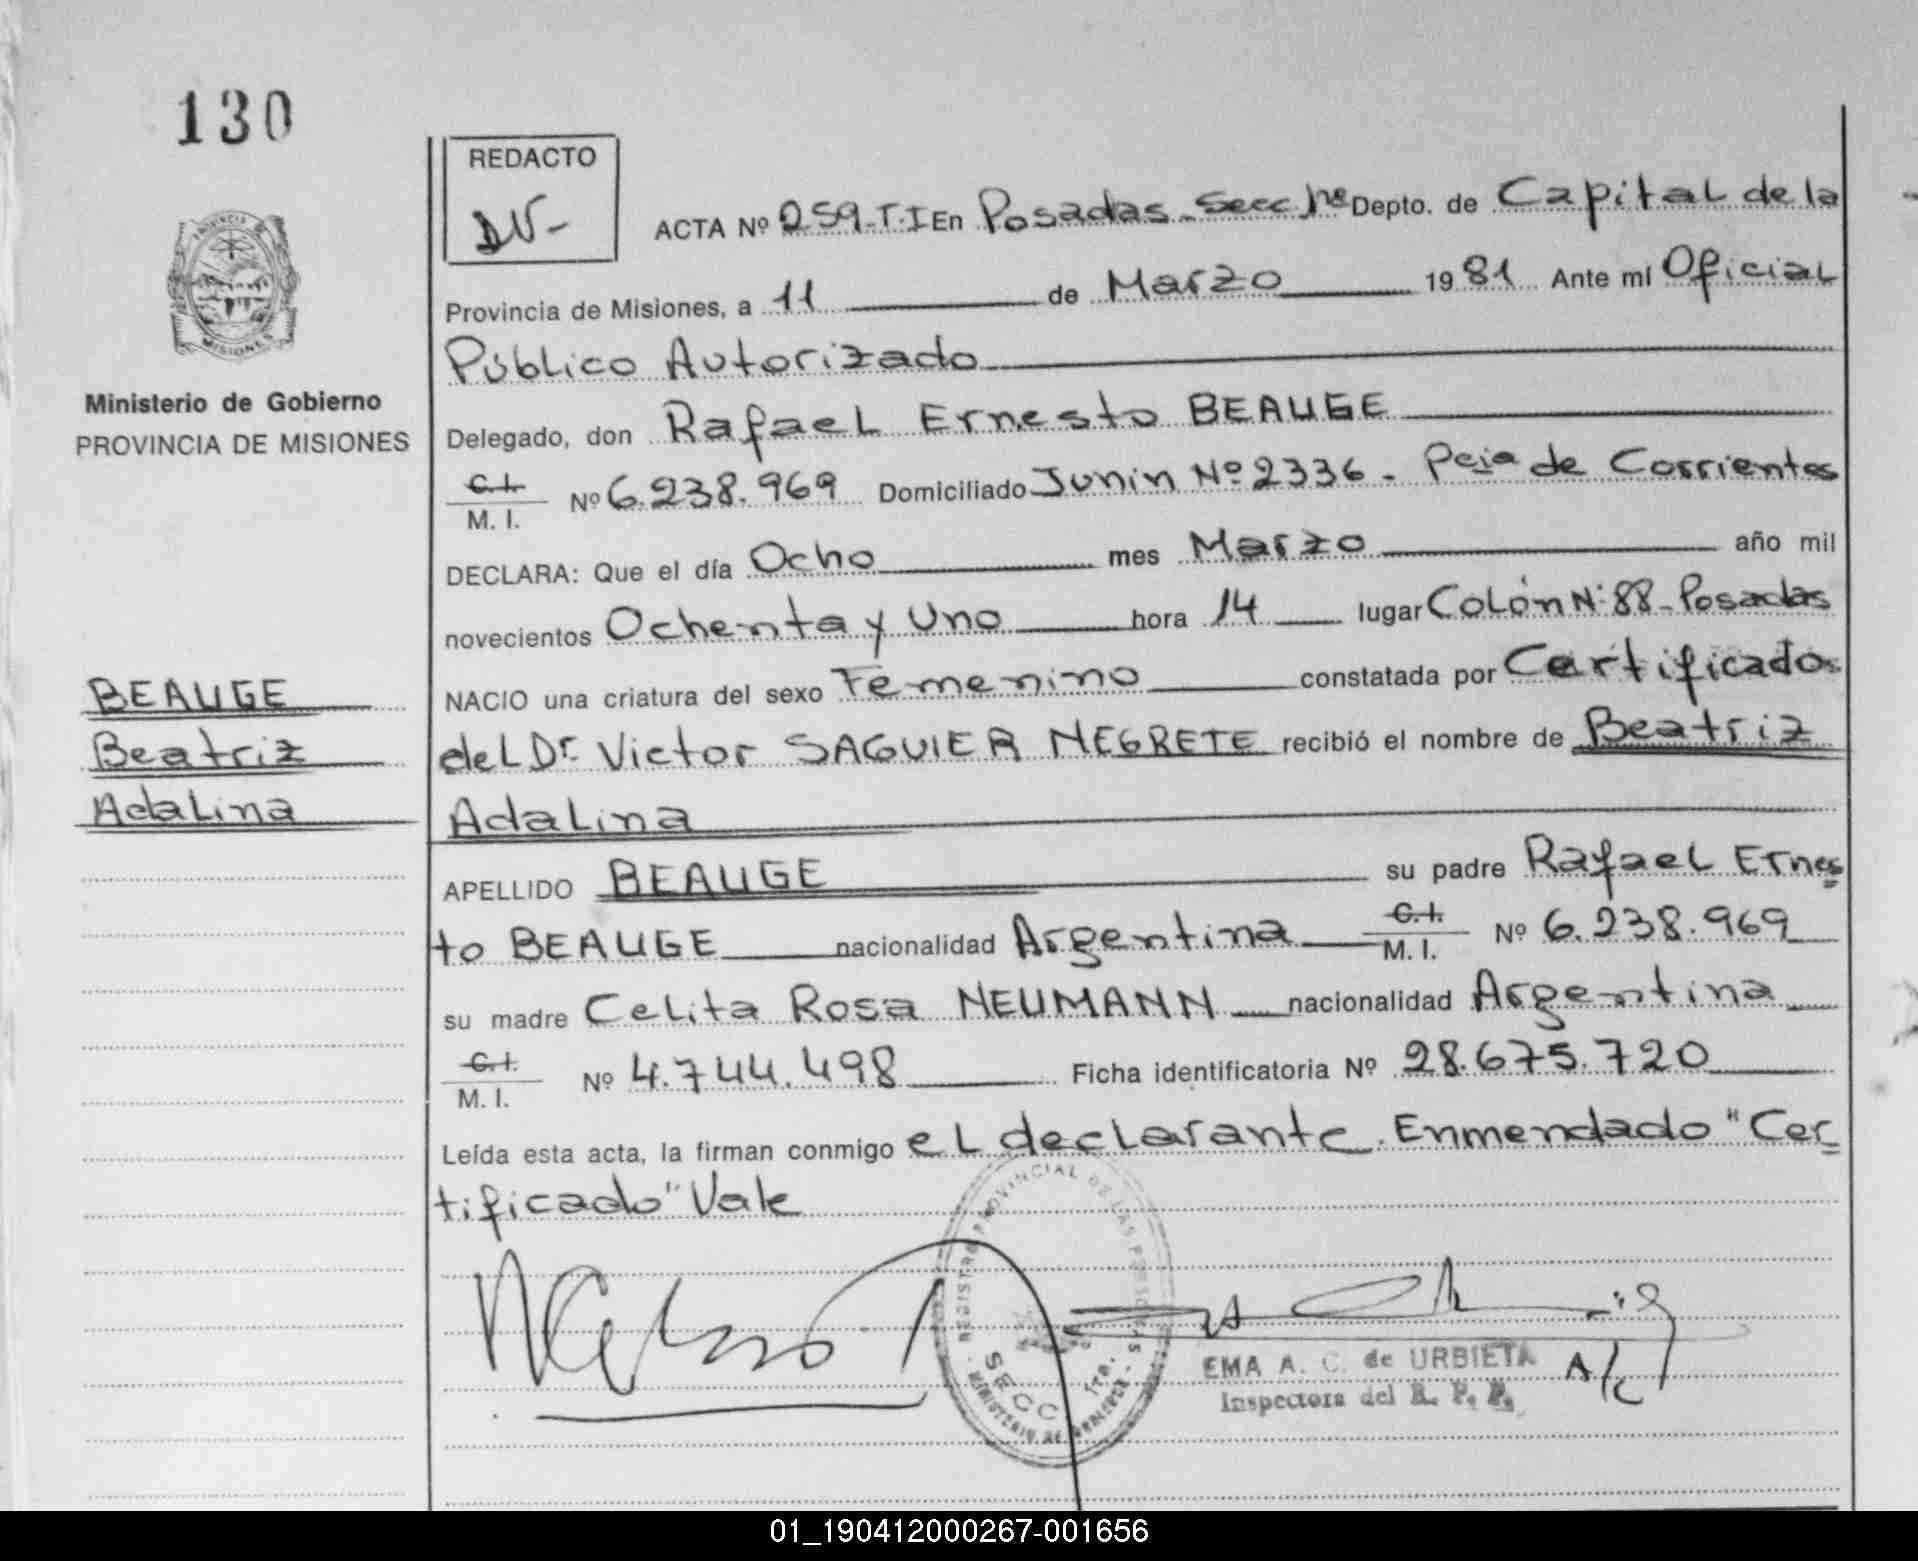 130
REDACTO
DV-
ACTA Nº 259-T-I En Posadas-Secc. 1ra Depto. de Capital de la
Provincia de Misiones, a 11 de Marzo 1981 Ante mí Oficial
Público Autorizado
Ministerio de Gobierno
PROVINCIA DE MISIONES
Delegado, don Rafael Ernesto BEAUGE
C.I.
M. I. Nº 6.238.969 Domiciliado Junin Nº 2336- Pcia de Corrientes
DECLARA: Que el día Ocho mes Marzo año mil
novecientos Ochenta y Uno hora 14 lugar Colón N: 88-Posadas
NACIO una criatura del sexo Femenino constatada por Certificado
del Dr. Victor SAGUIER NEGRETE recibió el nombre de Beatriz
Adalina
BEAUGE
Beatriz
Adalina
APELLIDO BEAUGE su padre Rafael Ernes
to BEAUGE nacionalidad Argentina C.I. M. I. Nº 6.238.969
su madre Celita Rosa NEUMANN nacionalidad Argentina
C.I.
M. I. Nº 4.744.498 Ficha identificatoria Nº 28.675.720
Leída esta acta, la firman conmigo el declarante. Enmendado "Cer
tificado" Vale
PROVINCIA
MISIONES
REGISTRO PROVINCIAL DE LAS PERSONAS
SECC. 1ra.
MINISTERIO DE GOBIERNO
EMA A. C. de URBIETA
Inspectora del R. P. P.
A/C
01_190412000267-001656